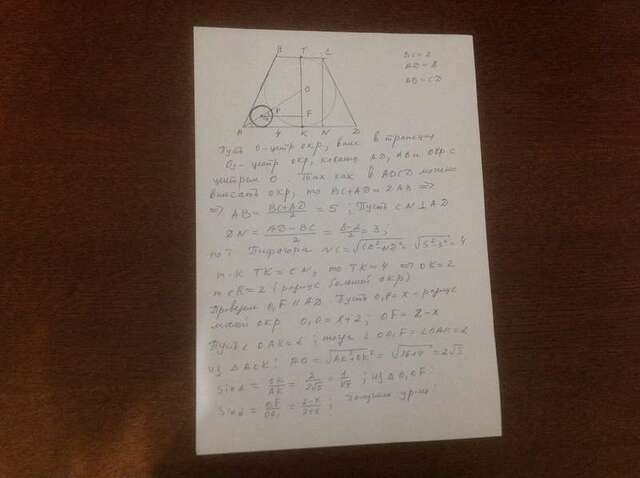 BC=2
AD=8
AB=CD
B T C
O
F
A 4 K N D
Пусть O-центр окр, впис в трапец
O₁-центр окр, касающ AD, AB и окр с
центром O. Так как в ABCD можно
вписать окр, то BC+AD=2AB =>
=> AB = (BC+AD)/2 = 5; Пусть CN⊥AD
DN = (AD-BC)/2 = (8-2)/2 = 3;
по т Пифагора NC=√(CD²-ND²)=√(5²-3²)=4
т.к TK=CN, то TK=4 => OK=2
т.е R=2 (радиус большой окр)
Проведем O₁F∥AD. Пусть O₁P=x-радиус
малой окр O₁O=x+2; OF=2-x
Пусть ∠OAK=α; тогда ∠OO₁F=∠OAK=α
из △AOK: AO=√(AK²+OK²)=√(16+4)=2√5
sinα = OK/AO = 2/2√5 = 1/√5; из △O₁OF:
sinα = OF/OO₁ = (2-x)/(2+x); Получим ур-ние: